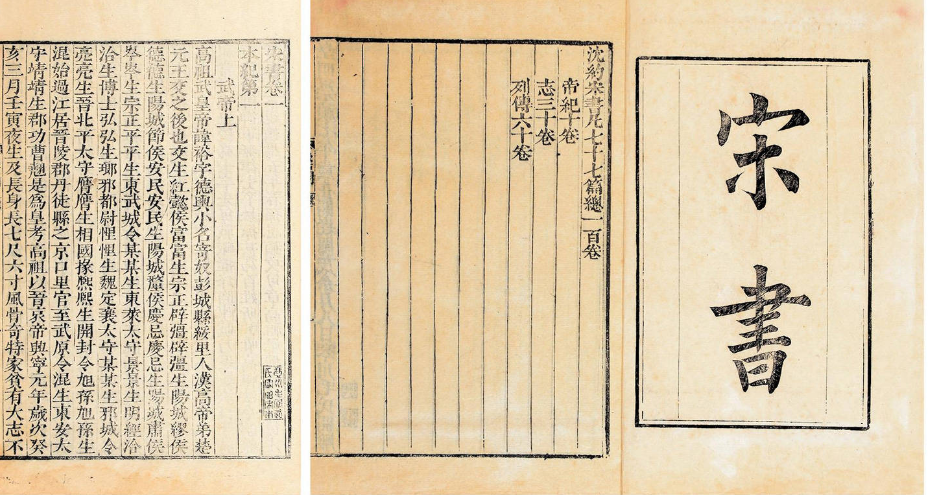 宋書
沈約宋書凡七十七篇總一百卷
帝紀十卷
志三十卷
列傳六十卷
宋書卷一
本紀第一
武帝上
高祖武皇帝諱裕字德輿小名寄奴彭城縣綏里人漢高帝弟楚
元王交之後也交生紅懿侯富富生宗正辟彊辟彊生陽城繆侯
德德生陽城節侯安民安民生陽城釐侯慶忌慶忌生陽城肅侯
岑岑生宗正平平生東武城令某某生東萊太守景景生明經洽
洽生博士弘弘生琅邪都尉悝悝生魏定襄太守某某生邪城令
亮亮生晉北平太守膺膺生相國掾熙熙生開封令旭孫旭孫生
混始過江居晉陵郡丹徒縣之京口里官至武原令混生東安太
守靖靖生郡功曹翹是為皇考高祖以晉哀帝興寧元年歲次癸
亥三月壬寅夜生及長身長七尺六寸風骨奇特家貧有大志不